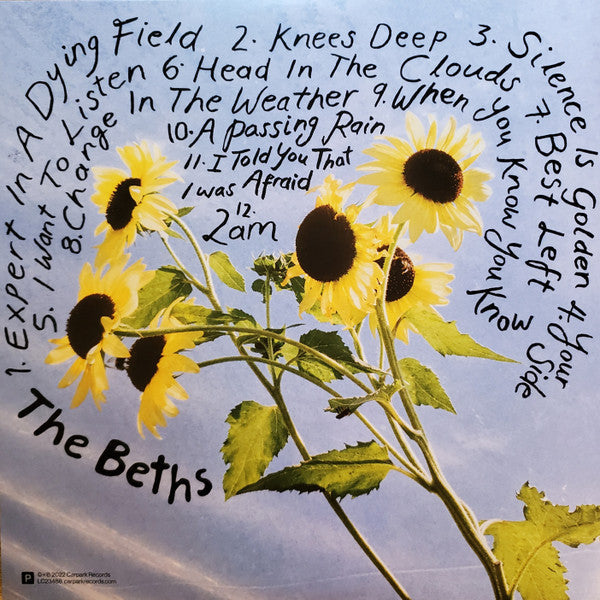 1. Expert In A Dying Field 2. Knees Deep 3. Silence Is Golden 4. Your
5. I Want To Listen 6. Head In The Clouds 7. Best Left Side
8. Change In The Weather 9. When You Know You Know
10. A Passing Rain
11. I Told You That
I was Afraid
12.
2am
The Beths
P ℗+© 2022 Carpark Records
LC23488. carparkrecords.com